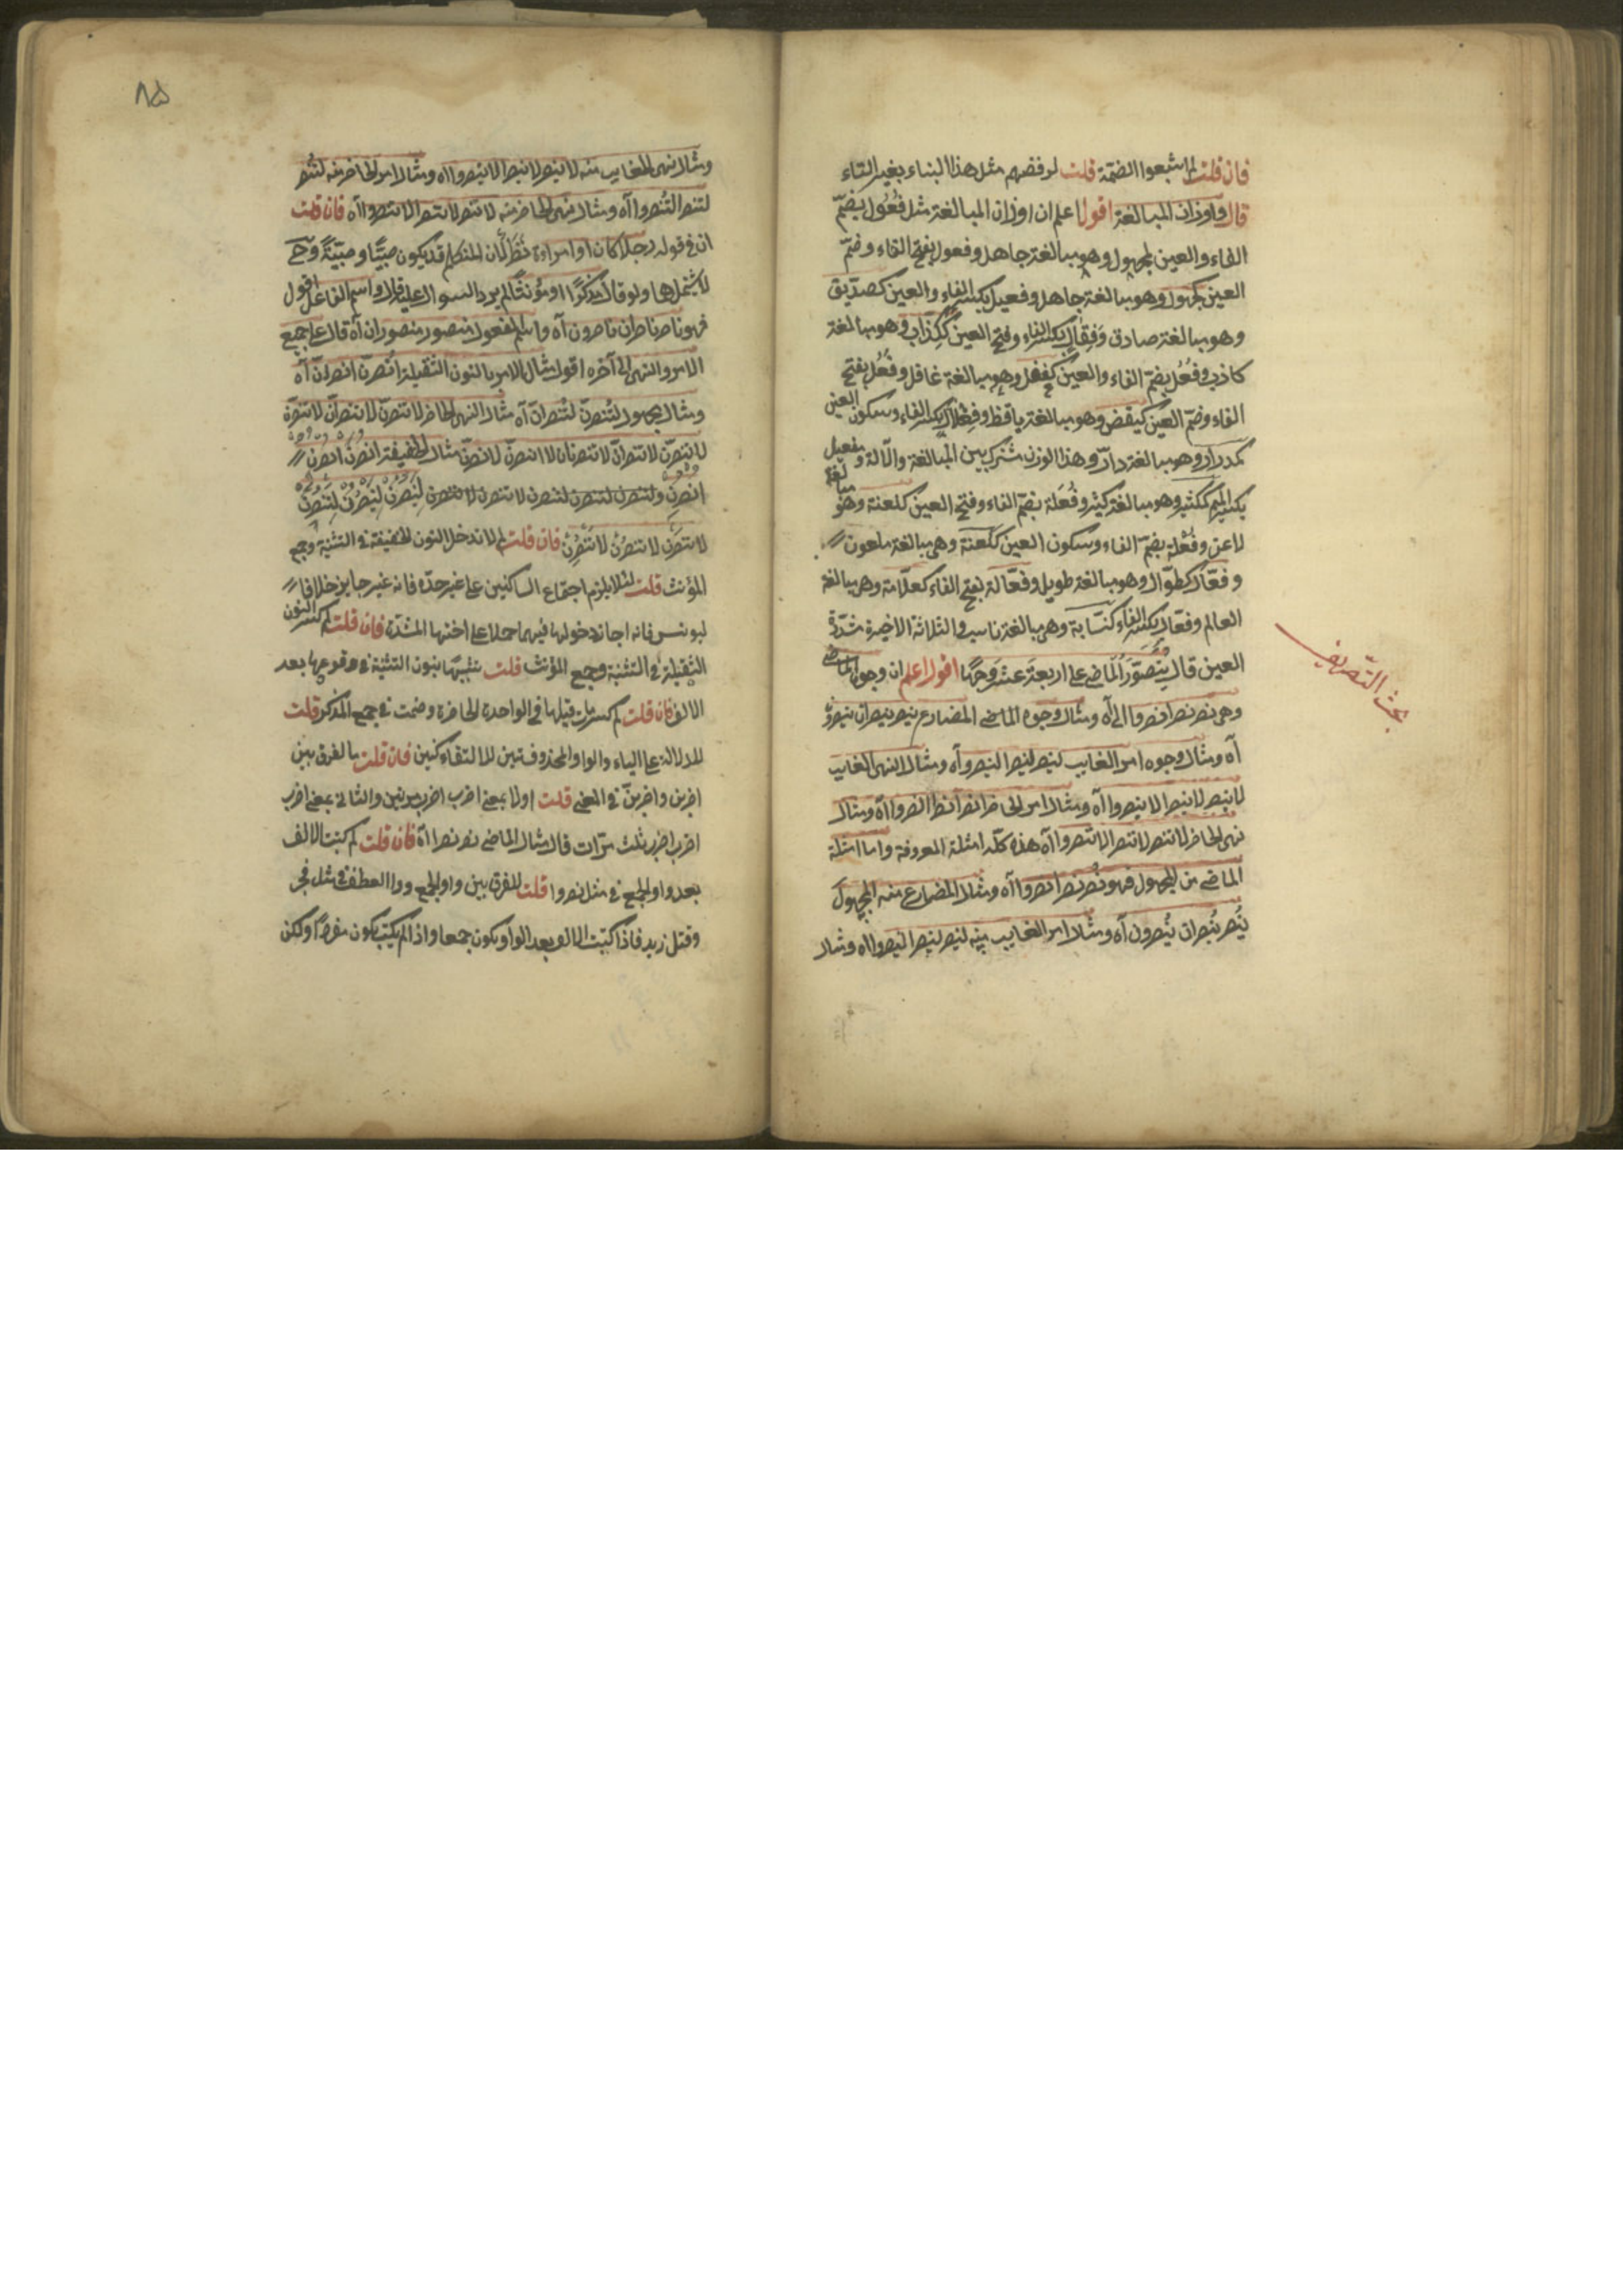 فان قلت لم اشبعوا الضمة قلت لرفضهم مثل هذا البناء بغير التاء
قال واوزان المبالغة اقول اعلم ان اوزان المبالغة مثل فُعُول بضمّ
الفاء والعين وهو مبالغة جاهل وفعول بفتح الفاء وضمّ
العين كجهول وهو مبالغة جاهل وفعيل بكسر الفاء والعين كصدّيق
وهو مبالغة صادق وفِعّال بكسر الفاء وفتح العين ككِذّاب وهو مبالغة
كاذب وفُعُل بضمّ الفاء والعين كغفل وهو مبالغة غافل وفَعُل بفتح
الفاء وضمّ العين كيقض وهو مبالغة ياقظ وبكسر الفاء وسكون العين
كمدرار وهو مبالغة دارّ وهذا الوزن مشترك بين المبالغة والآلة ومفعيل
بكسر الميم وهو مبالغة كثير وفُعَلة بضمّ الفاء وفتح العين كلعنة وهو مبالغة
لاعن وفُعْلة بضمّ الفاء وسكون العين كلعنة وهى مبالغة ملعون
وفعّال كطوّال وهو مبالغة طويل وفعّالة بفتح الفاء كعلّامة وهى مبالغة
العالم بكسر الفاء وهى مبالغة ناسب والثلاثة الاخيرة مشدّدة
العين قال يتصوّر الماضى على اربعة عشر وجهًا اقول اعلم ان وجوه الماضى
وهى نصر نصرا نصروا الى آه ومثال وجوه الماضى المضارع ينصر ينصران ينصرون
آه ومثال وجوه امر الغايب لينصر لينصرا لينصروا آه ومثال النهى الغايب
لا ينصر لا ينصرا لا ينصروا آه ومثال امر الحاضر انصر انصرا انصروا آه ومثال
نهى الحاضر لا تنصر لا تنصرا لا تنصروا آه هذه كلّه امثلة المعروفة واما امثلة
الماضى من المجهول فهو نُصر نُصرا نُصروا آه ومثال المضارع منه المجهول
يُنصر يُنصران يُنصرون آه ومثال امر الغايب منه لينصر لينصرا لينصروا آه ومثال
بحث التّصريف
٨٥
ومثال نهى الغايب منه لا ينصر لا ينصرا لا ينصروا آه ومثال امر الحاضر منه لتُنصر
لتنصرا لتُنصروا آه ومثال نهى الحاضر منه لا تنصر لا تنصرا لا تنصروا آه فان قلت
ان فى قوله رجلا كان او امراءة نظرًا لان المتكلم قد يكون صبيًّا وصبيّةً وحى
لا يشملها ولو قال مذكرًا او مؤنثًا لم يرد السوال عليه قال واسم الفاعل اقول
فهو ناصر ناصران ناصرون آه واسم المفعول منصور منصوران آه قال على جميع
الامر والنهى الى آخره اقول مثال الامر بالنون الثقيلة انصرنّ انصرانّ آه
ومثال مجهول لتُنصرنّ لتُنصرانّ آه مثال النهى الحاضر لا تنصرنّ لا تنصرانّ لا تنصرنّ
لا تنصرنّ لا تنصرانّ لا تنصرنانّ مثال الخفيفة انصرن انصرن
لا تنصرن لا تنصرُن لا تنصرِن فان قلت لم لا تدخل النون الخفيفة فى التثنية وجمع
المؤنث قلت لئلا يلزم اجتماع الساكنين على غير حدّه فانه غير جايز خلافا
ليونس فانه اجاز دخولها فيهما حملا على اختها المشدّدة فان قلت لم كسر النون
الثقيلة فى التثنية وجمع المؤنث قلت تشبيهًا بنون التثنية فى وقوعها بعد
الالف فان قلت لم كسر ما قبلها فى الواحدة الحاضرة وضمت فى جمع المذكر قلت
للدلالة على الياء والواو المحذوفتين لالتقاء كنين فان قلت ما الفرق بين
اضربن واضربنّ فى المعنى قلت اولا بمعنى اضرب اضرب مرتين والثانى بمعنى اضرب
اضرب اضرب ثلث مرّات قال مثال الماضى نصر نصرا آه فان قلت لم كتبت الالف
بعد واو الجمع فى مثل نصروا قلت للفرق بين واو الجمع وواو العطف فى مثل
وقتل زيد فاذا كتبت الالف بعد الواو يكون جمعا واذا لم يكتب يكون مفردًا ولكن